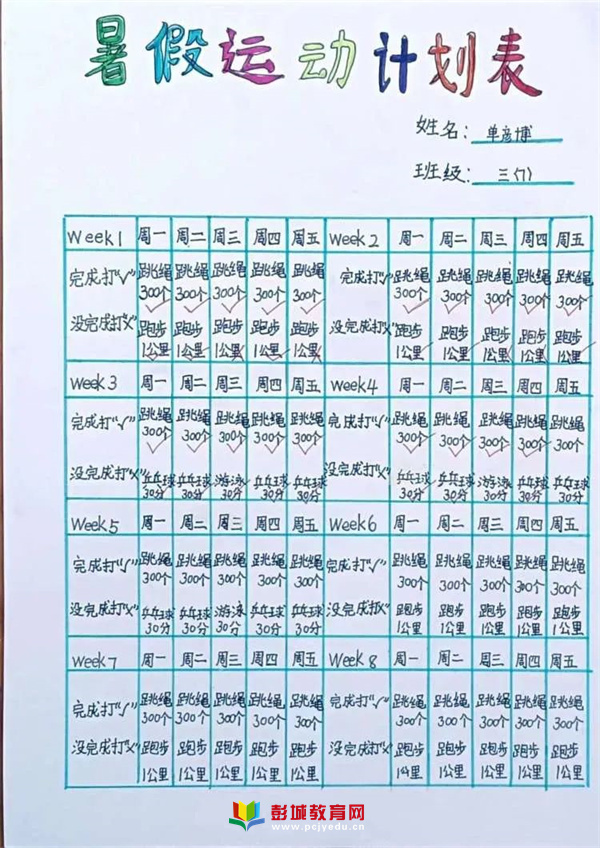 暑假运动计划表
姓名: 单彦博
班级: 三(7)
Week1 周一 周二 周三 周四 周五 Week2 周一 周二 周三 周四 周五
完成打"√" 跳绳 跳绳 跳绳 跳绳 跳绳 完成打"√" 跳绳 跳绳 跳绳 跳绳 跳绳
300个 300个 300个 300个 300个 300个 300个 300个 300个 300个
没完成打"×" 跑步 跑步 跑步 跑步 跑步 没完成打"×" 跑步 跑步 跑步 跑步 跑步
1公里 1公里 1公里 1公里 1公里 1公里 1公里 1公里 1公里 1公里
Week3 周一 周二 周三 周四 周五 Week4 周一 周二 周三 周四 周五
完成打"√" 跳绳 跳绳 跳绳 跳绳 跳绳 完成打"√" 跳绳 跳绳 跳绳 跳绳 跳绳
300个 300个 300个 300个 300个 300个 300个 300个 300个 300个
没完成打"×" 乒乓球 乒乓球 游泳 乒乓球 乒乓球 没完成打"×" 乒乓球 乒乓球 游泳 乒乓球 乒乓球
30分 30分 30分 30分 30分 30分 30分 30分 30分 30分
Week5 周一 周二 周三 周四 周五 Week6 周一 周二 周三 周四 周五
完成打"√" 跳绳 跳绳 跳绳 跳绳 跳绳 完成打"√" 跳绳 跳绳 跳绳 跳绳 跳绳
300个 300个 300个 300个 300个 300个 300个 300个 300个 300个
没完成打"×" 乒乓球 乒乓球 游泳 乒乓球 乒乓球 没完成打"×" 跑步 跑步 跑步 跑步 跑步
30分 30分 30分 30分 30分 1公里 1公里 1公里 1公里 1公里
Week7 周一 周二 周三 周四 周五 Week8 周一 周二 周三 周四 周五
完成打"√" 跳绳 跳绳 跳绳 跳绳 跳绳 完成打"√" 跳绳 跳绳 跳绳 跳绳 跳绳
300个 300个 300个 300个 300个 300个 300个 300个 300个 300个
没完成打"×" 跑步 跑步 跑步 跑步 跑步 没完成打"×" 跑步 跑步 跑步 跑步 跑步
1公里 1公里 1公里 1公里 1公里 1公里 1公里 1公里 1公里 1公里
彭城教育网
www.pcjyedu.cn